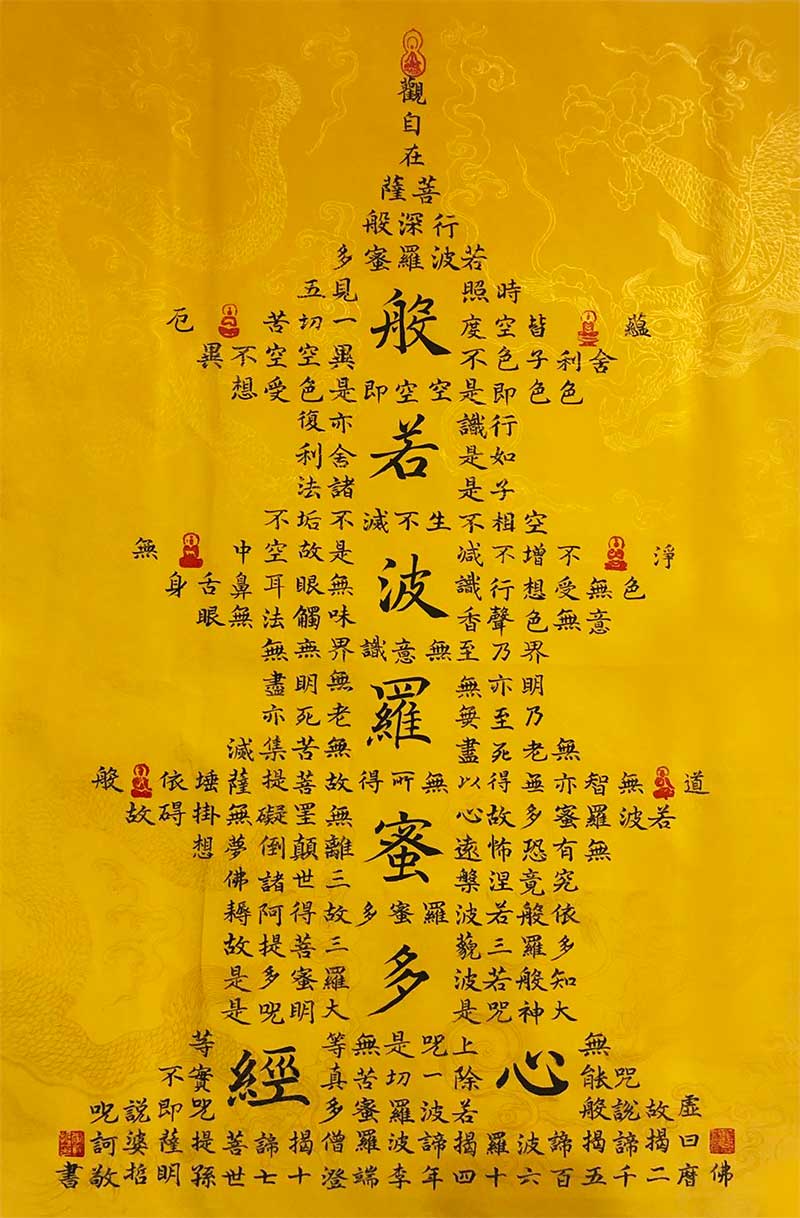 觀
自
在
菩薩
行深般
若波羅蜜多
時照見五
蘊皆空度一切苦厄
舍利子色不異空空不異
色色即是空空即是色受想
行識亦復
如是舍利
子是諸法
空相不生不滅不垢不
淨不增不減是故空中無
色無受想行識無眼耳鼻舌身
意無色聲香味觸法無眼
界乃至無意識界無無
明亦無無明盡
乃至無老死亦
無老死盡無苦集滅
道無智亦無得以無所得故菩提薩埵依般
若波羅蜜多故心無罣礙無掛碍故
無有恐怖遠離顛倒夢想
究竟涅槃三世諸佛
依般若波羅蜜多故得阿耨
多羅三藐三菩提故
知般若波羅蜜多是
大神咒是大明咒是
無上咒是無等等
咒能除一切苦真實不
虛故說般若波羅蜜多咒即說咒
曰揭諦揭諦波羅揭諦波羅僧揭諦菩提薩婆訶
佛曆二千五百六十四年李端澄十七世孫明哲敬書
般若波羅蜜多心經